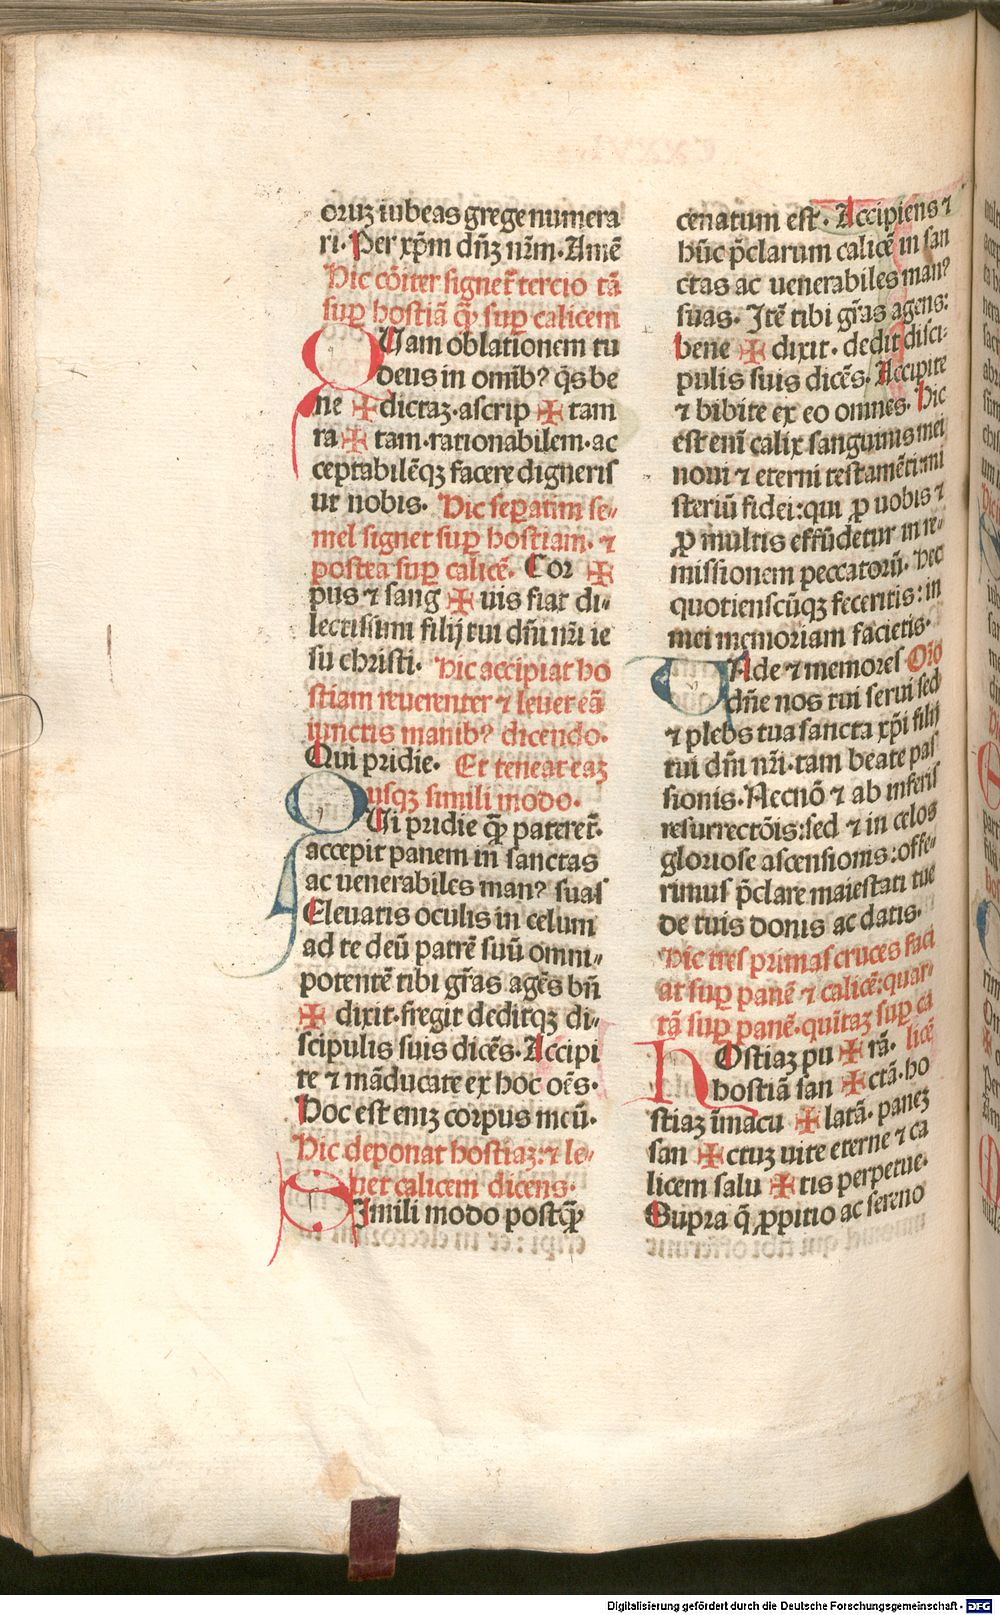 oruꝫ iubeas grege numera
ri. Per xp̄m dn̄ꝫ nr̄m. Amē
Hic cōiter signet᷑ tercio tā
suꝑ hostiā ꝙ̄ suꝑ calicem
QUam oblationem tu
deus in omīb? q̄s be
ne ✠ dictaꝫ. ascrip ✠ tam
ra ✠ tam. rationabilem. ac
ceptabilēqꝫ facere digneris
ut nobis. Hic seꝑatim se⸗
mel signet suꝑ hostiam. ⁊
postea suꝑ calicē. Cor ✠
pus ⁊ sang ✠ uis fiat di⸗
lectissimi filij tui dn̄i nr̄i ie
su christi. Hic accipiat ho
stiam reuerenter ⁊ leuet eā
iunctis manib? dicendo.
Qui pridie. Et teneat eaꝫ
usqꝫ simili modo.
QUi pridie ꝙ̄ pateret᷑.
accepit panem in sanctas
ac uenerabiles man? suas
Eleuatis oculis in celum
ad te deū patrē suū omni⸗
potentē tibi gr̄as agēs bn̄
✠ dixit. fregit deditqꝫ di⸗
scipulis suis dicēs. Accipi
te ⁊ māducate ex hoc oēs.
Hoc est enīꝫ corpus meū.
Hic deponat hostiaꝫ: ⁊ le⸗
uet calicem dicens.
SImili modo postꝙ̄
cenatum est. Accipiens ⁊
hūc p̄clarum calicē in san
ctas ac uenerabiles man?
suas. Itē tibi gr̄as agens:
bene ✠ dixit. dedit disci⸗
pulis suis dicēs. Accipite
⁊ bibite ex eo omnes. Hic
est enī calix sanguinis mei
noui ⁊ eterni testamēti: mi
steriū fidei: qui ꝓ uobis ⁊
ꝓ multis effūdetur in re⸗
missionem peccatorū. Hec
quotienscūqꝫ feceritis: in
mei memoriam facietis.
UNde ⁊ memores Or̄o
dn̄e nos tui serui sed
⁊ plebs tua sancta xp̄i filij
tui dn̄i nr̄i. tam beate pas
sionis. Necnō ⁊ ab inferis
resurrectōis: sed ⁊ in celos
gloriose ascensionis: offe⸗
rimus p̄clare maiestati tue
de tuis donis ac datis.
Hic tres primas cruces faci
at suꝑ panē ⁊ calicē: quar⸗
tā suꝑ panē. quītaꝫ suꝑ ca
HOstiaꝫ pu ✠ rā. licē
hostiā san ✠ ctā. ho
stiaꝫ īmacu ✠ latā. panēꝫ
san ✠ ctuꝫ uite eterne ⁊ ca
licem salu ✠ tis perpetue.
Supra q̄ ꝓpitio ac sereno
Digitalisierung gefördert durch die Deutsche Forschungsgemeinschaft - DFG